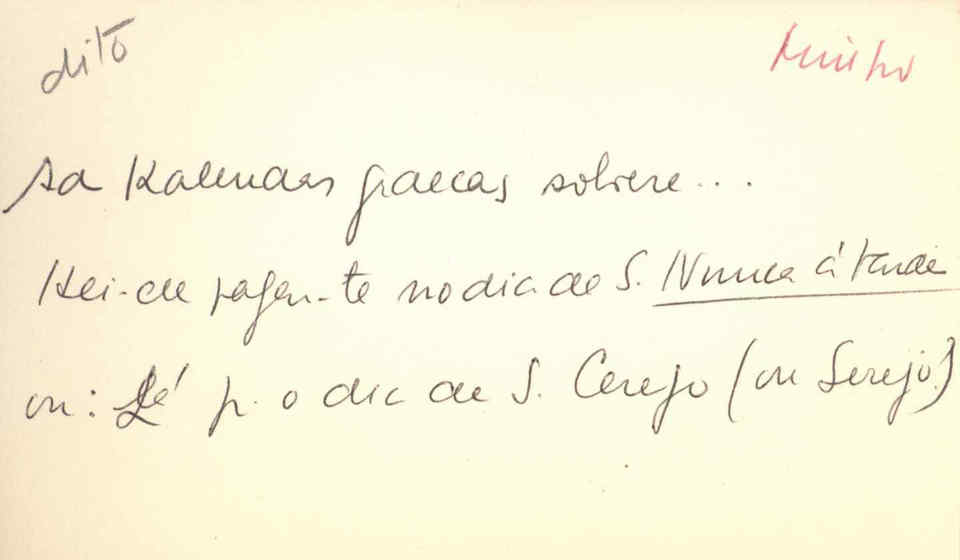 dito
Minho
Ad Kalendas graecas solvere...
Hei-de pagar-te no dia de S. Nunca à tarde
ou: Lá p. o dia de S. Cerejo (ou Serejo?)